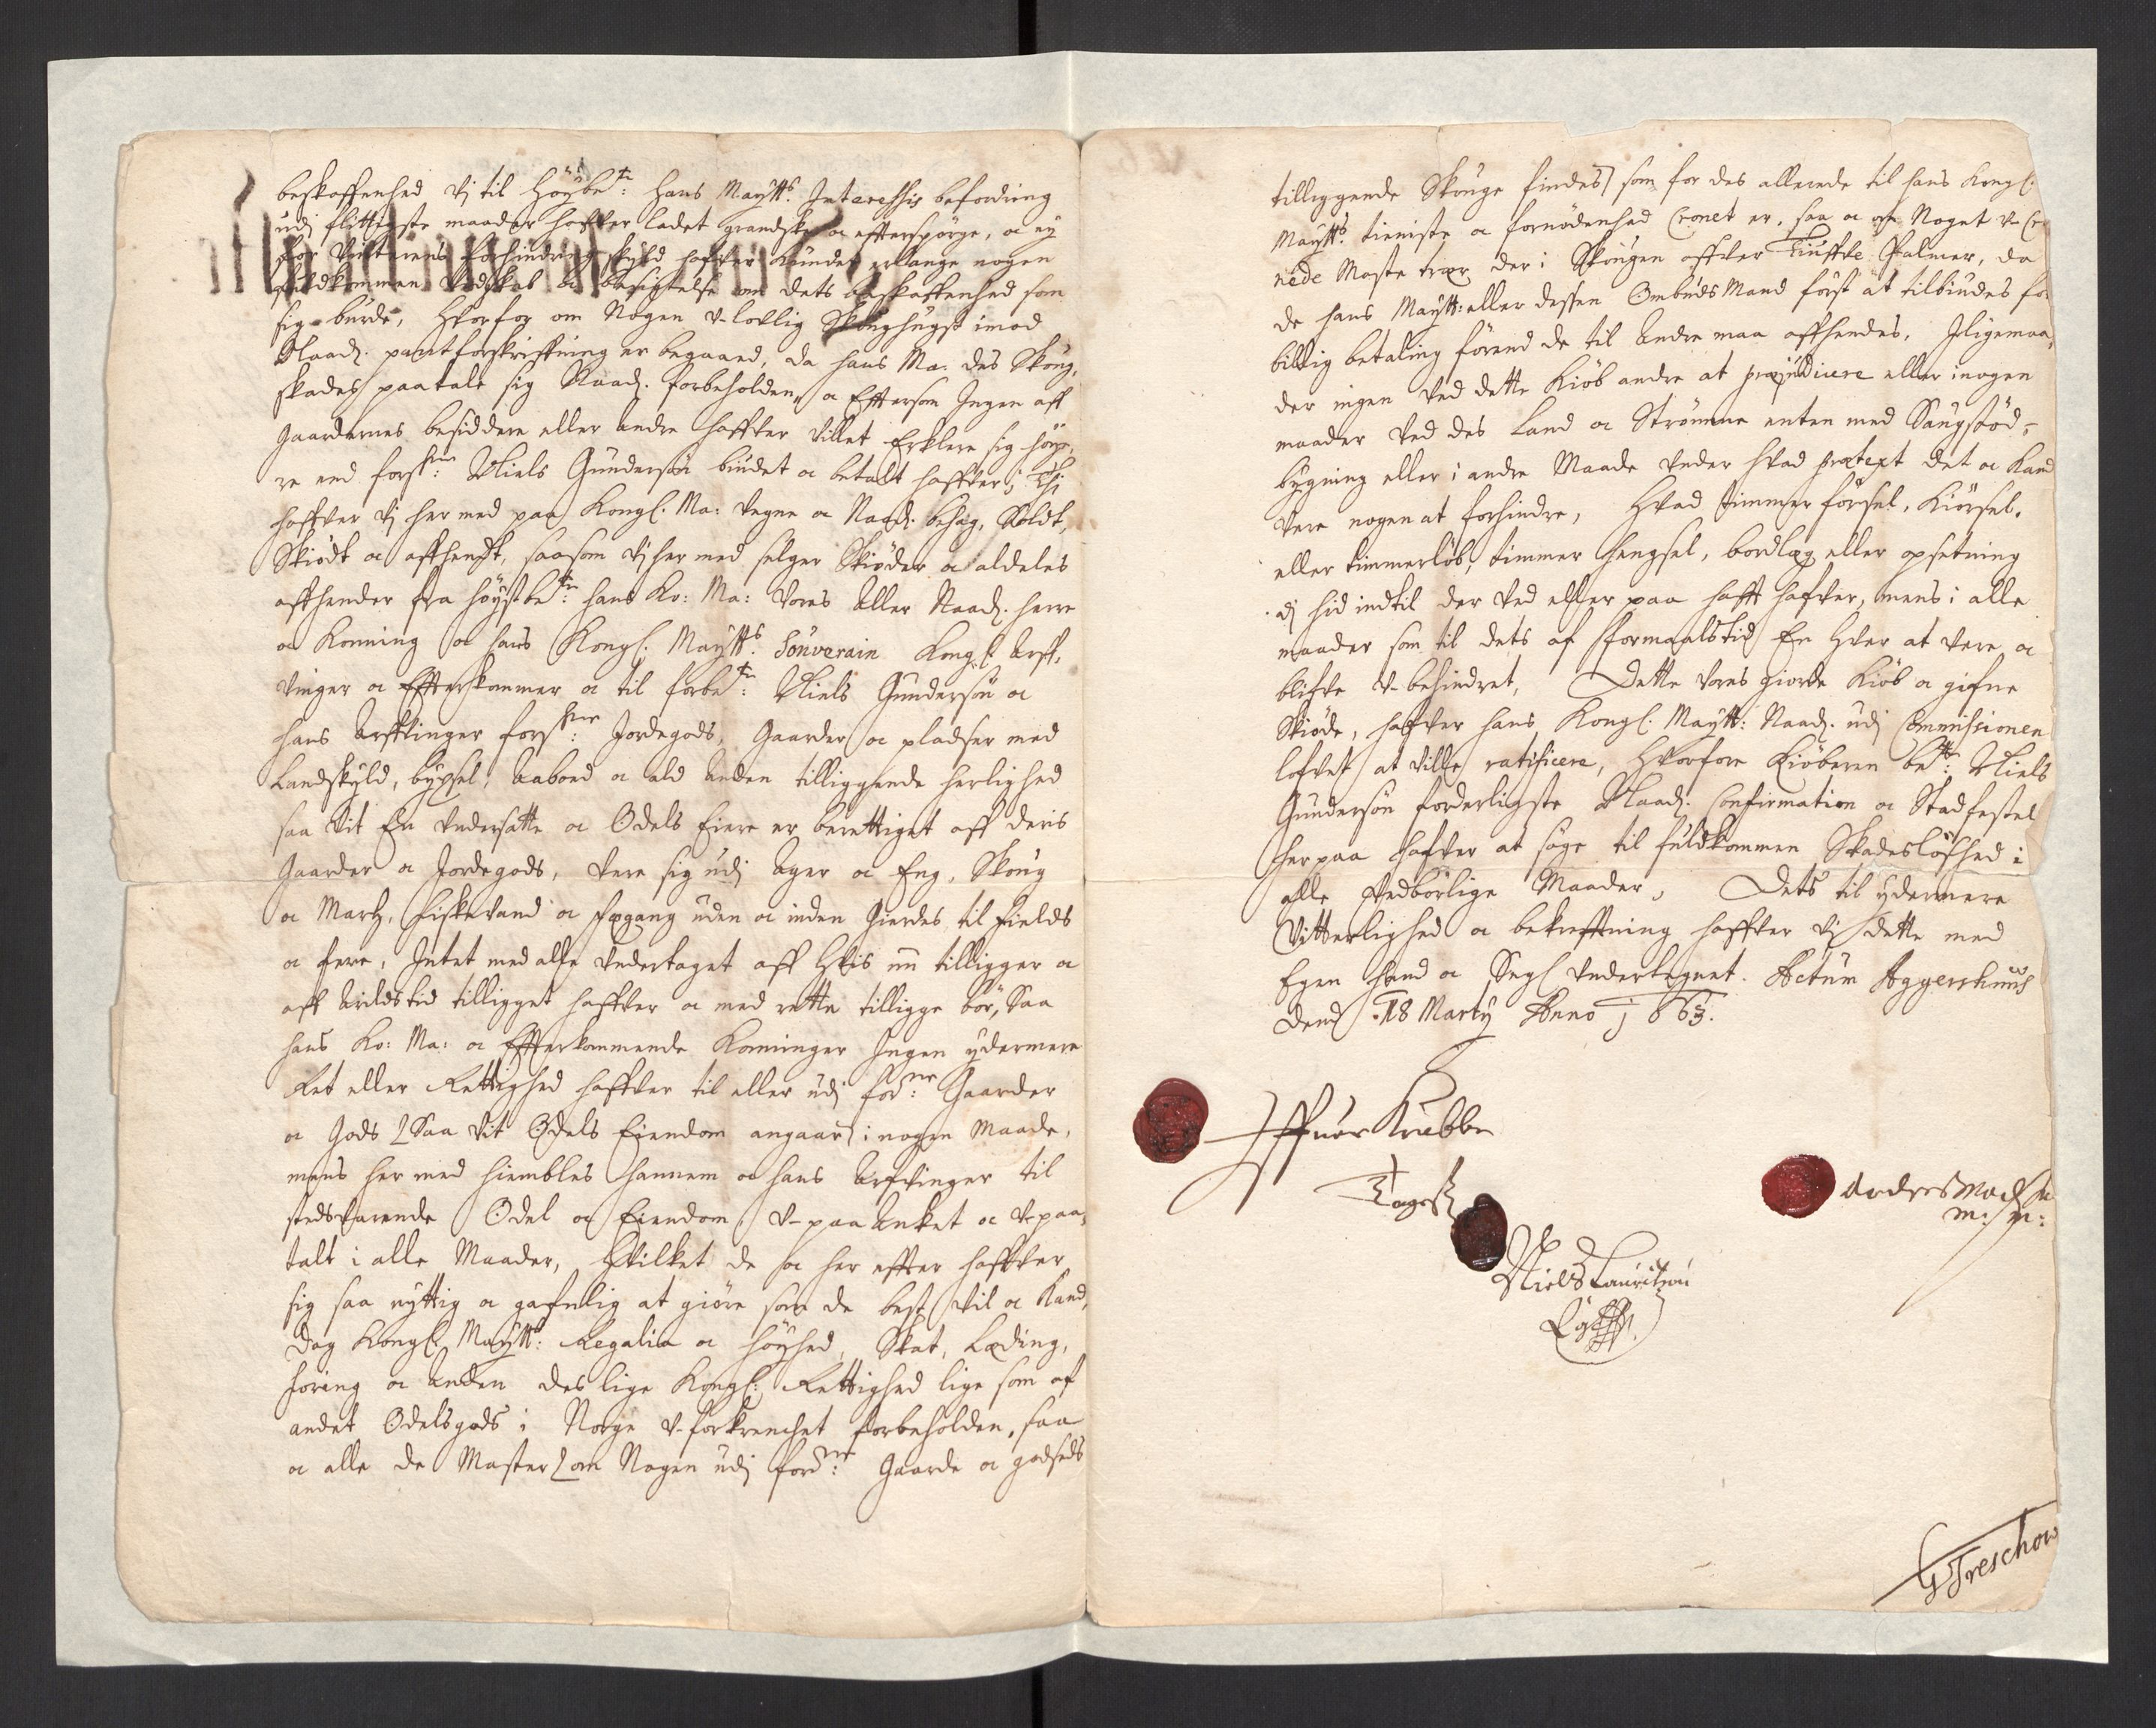 beskaffenhed Vj til Höybe:te Hans Maytts. Interessis befordring
udj flittigste maader haffver ladet grandske oc effterspörge, oc ej
for Vinterens forhindring skyld haffver kundet erlange nogen
fuldkommen Kundskab oc besigtelse om dets beskaffenhed som
sig burde, Hvorfor om Nogen V-lovlig Skoughugst imod
Naad. pantforskriffning er begaaed, da Hans Ma. des Skoug-
skades paatale sig Naad. forbeholden, oc Efftersom Ingen aff
Gaardernes besiddere eller Andre haffver Villet Erklere sig höye-
re end forsk:ne Niels Gundersön budet oc betalt haffver; Thi
haffver Vj her med paa Kongl. Ma: Vegne oc Naad. behag, Soldt,
Skiödt oc affhendt, saasom Vj her med selger Skiöder oc aldeles
affhender fra Höystbe:te Hans Ko: Ma: Vores Aller Naad. Herre
oc Konning oc Hans Kongl. Maytts. Souverain Kongl. Arff-
vinger oc Effterkommer oc til forbe:te Niels Gundersön oc
hans Arffvinger forsk:ne Jordegods, Gaarder oc pladser med
Landskyld, bygsel, Aaboed oc ald Anden tilliggende herlighed
saa Vit En Vndersatte oc Odels Eiere er berettiget aff deris
Gaarder oc Jordegods, Vere sig udj Ager oc Eng, Skoug
oc Mark, fiskevand oc fægang uden oc inden Gierdes til fields
oc fere, Intet med alle Vndertaget aff Hvis nu tilligger oc
aff Arildstid tilligget haffver oc med rette tilligge bör, Saa
hans Ko: Ma: oc Effterkommende Konninger Ingen ydermere
Ret eller Rettighed haffver til eller udj for:ne Gaarder
oc Gods Saa Vit Odels Eiendom angaar i nogen Maade,
mens her med hiembles Hannem oc hans Arfvinger til
stedsvarende Odel oc Eiendom, V-paa Anket oc V-paa-
talt i alle Maader, Hvilket de oc her effter haffver
sig saa nyttig oc gafnlig at giöre som de best Vil oc Kand,
Dog Kongl. Maytts: Regalia oc Höyhed, Skat, Leding,
foring oc Anden des lige Kongl. Rettighed lige som af
andet Odelsgods i Norge V-forkrenchet forbeholden, saa
oc alle de Master som Nogen udj for:ne Gaarde oc godseds
tilliggende Skouge findes som for des allerede til hans Kongl.
Maytts. tieniste oc fornödenhed Cronet er, saa oc om Noget V-Cro
nede Maste trær der i Skougen offver Tiuffve Palmer, da
de hans Maytt: eller dessen Ombuds Mand först at tilbiudes for
billig betaling förend de til Andre maa affhendes, Iligemaa-
der ingen Ved dette Kiöb andre at præjudicere eller i nogen
maader Ved des Land oc Strömme enten med Saugstöd-
bygning eller i andre Maade Vnder hvad prætext det oc Kand
Vere nogen at forhindre, Hvad timmer försel, Kiörsel,
eller timmerlöb, timmer hengsel, bordlæg eller opsetning
Vj hid indtil der Ved eller paa hafft hafver, mens i alle
maader som til dets af formaalstid En Hver at Vere oc
blifve V-behindret, Dette Vores giorde Kiöb oc gifne
Skiöde, hafver Hans Kongl. Maytt: Naad. udj Commissionen
lofvet at Ville ratificere, Hvorfore Kiöberen be:te Niels
Gundersön forderligste Naad. Confirmation oc Stadfestel
her paa hafver at söge til fuldkommen Skadeslöshed i
alle Vedbörlige Maader, Dets til ydermere
Vitterlighed oc bekrefftning haffver Vj dette med
Egen Haand oc Segl Vndertegnet. Actum Aggershuus
Dend 18 Marty Anno 1663.
Iffuer Krabbe
Tagesön
Andres Madsen
m: p:
Niels Lauritzön
GTreschow